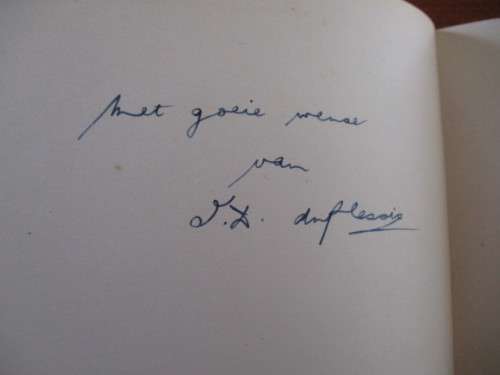 Met goeie wense
van
I.D. du Plessis